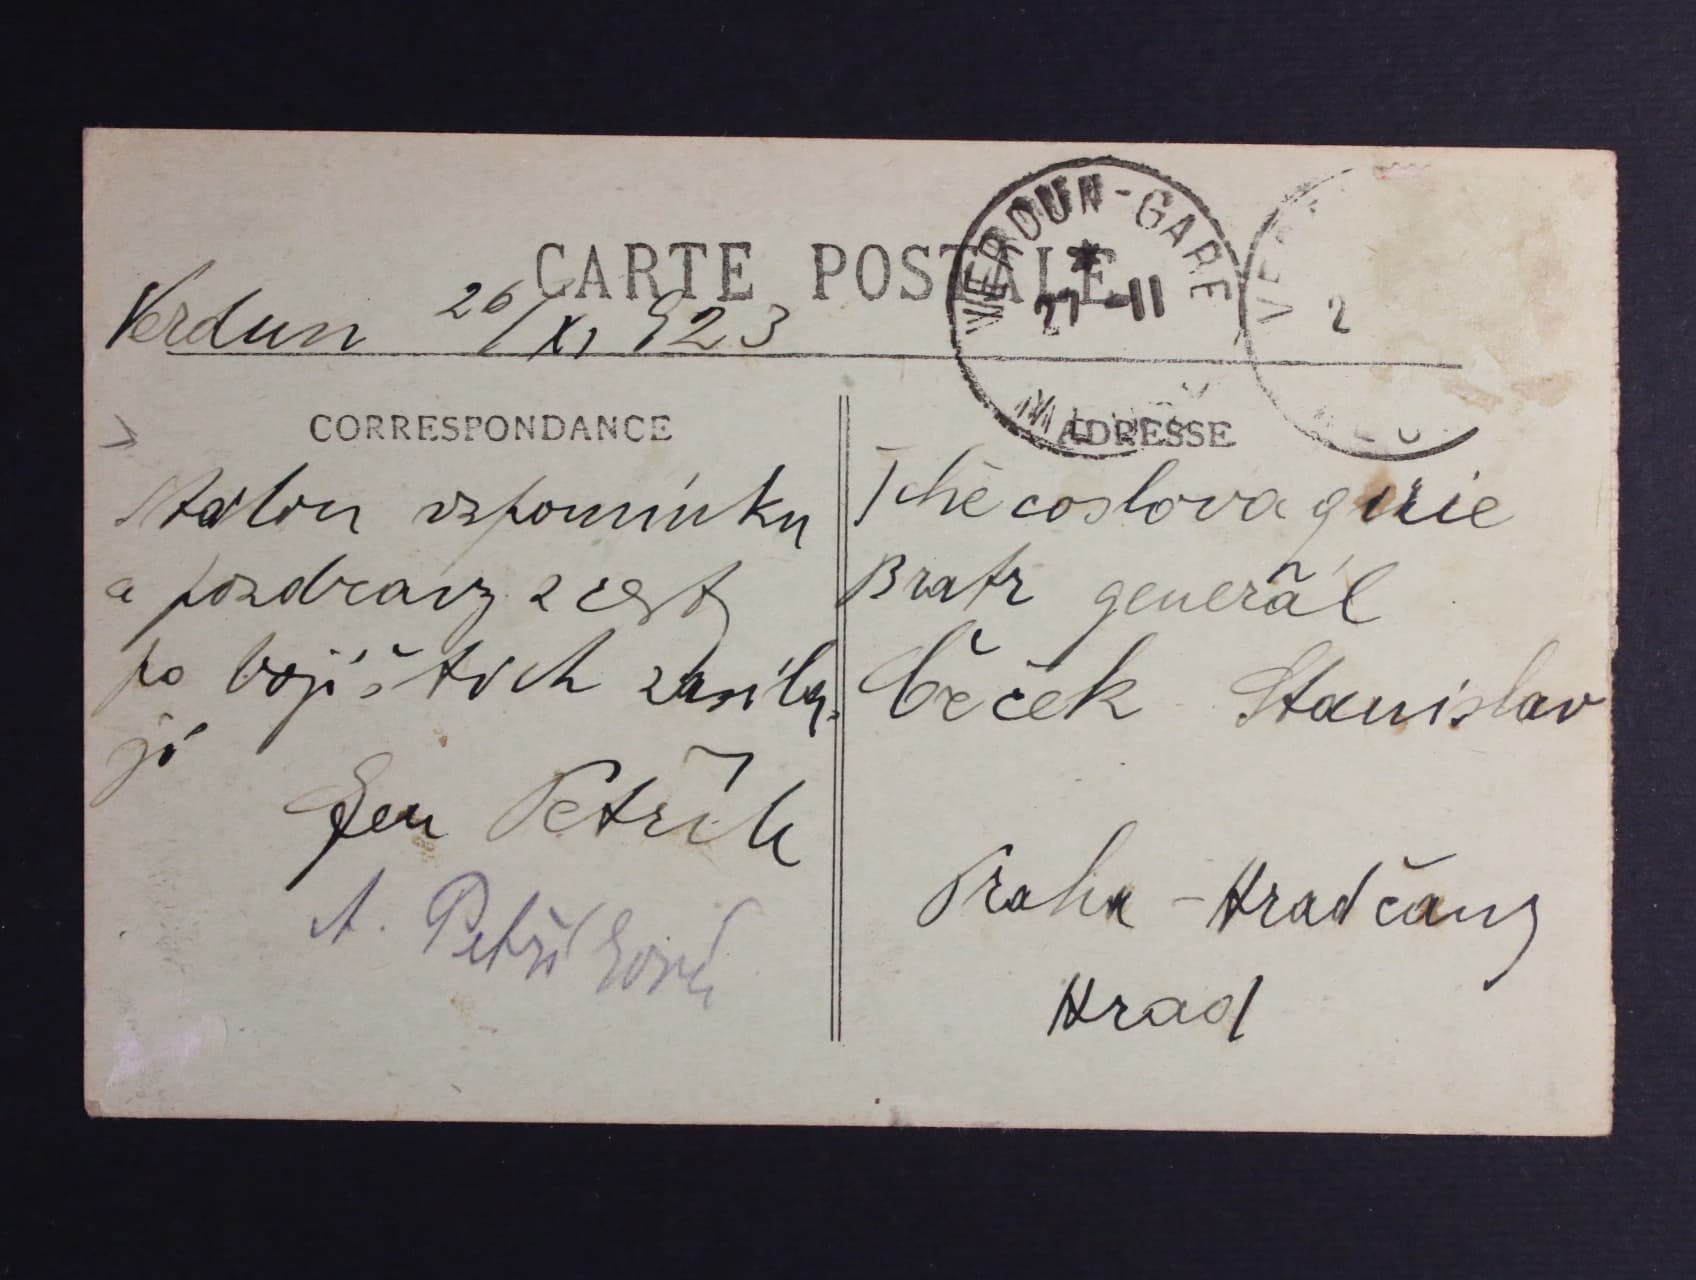 CARTE POSTALE
VERDUN-GARE
*
27 -11
MEUSE
2
Verdun 26/XI 923
CORRESPONDANCE
ADRESSE
Stálou vzpomínku
a pozdravy z cesty
po bojištích zasílá
Gen Petřík
A. Petříková
Tchècoslovaquie
Bratr generál
Čeček Stanislav
Praha - Hradčany
Hrad